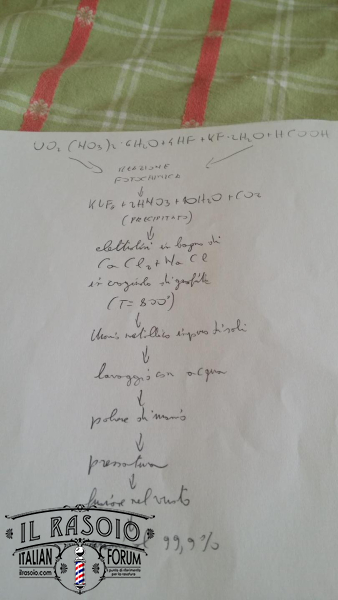 UO2 (NO3)2·6H2O+4HF+KF·2H2O+HCOOH
REAZIONE
FOTOCHIMICA
KUF5+2HNO3+10H2O+CO2
(PRECIPITATO)
elettrolisi in bagno di
CaCl2+NaCl
in crogiolo di grafite
(T=800°)
Uranio metallico impuro di sali
lavaggio con acqua
polvere di uranio
pressatura
fusione nel vuoto
99,9%
IL RASOIO
ITALIAN FORUM
ilrasoio.com
il punto di riferimento
per la rasatura